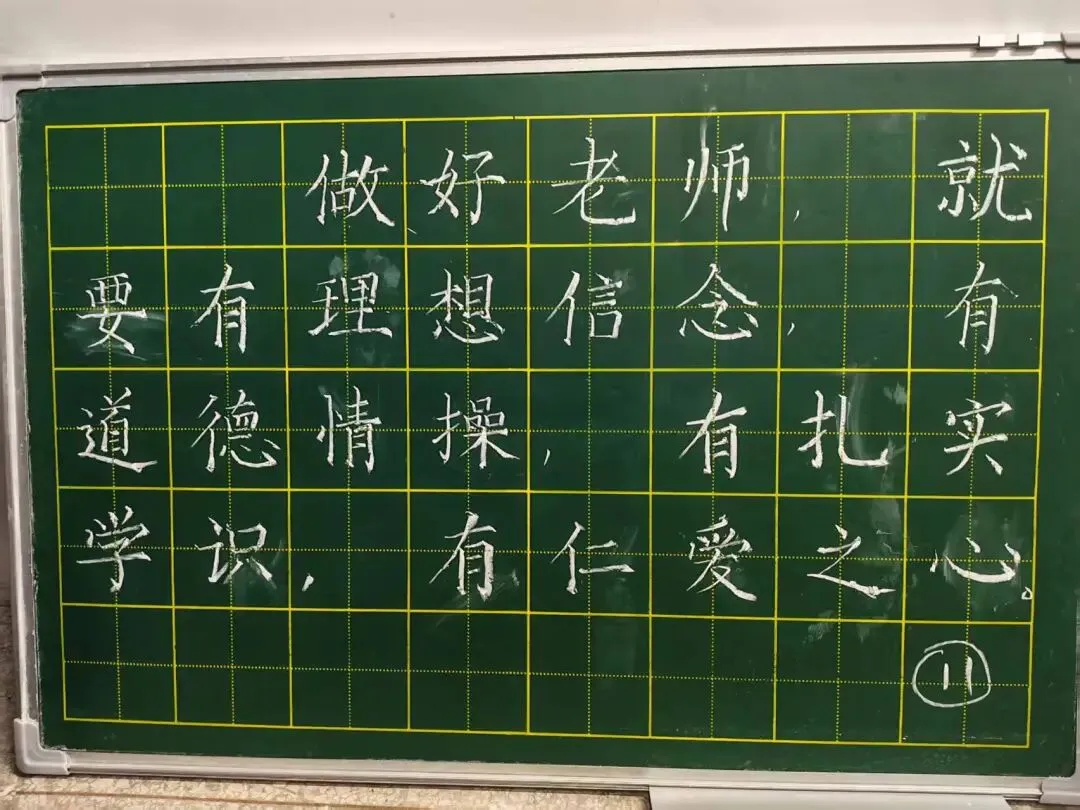 做好老师，就
要有理想信念，有
道德情操，有扎实
学识，有仁爱之心。
11